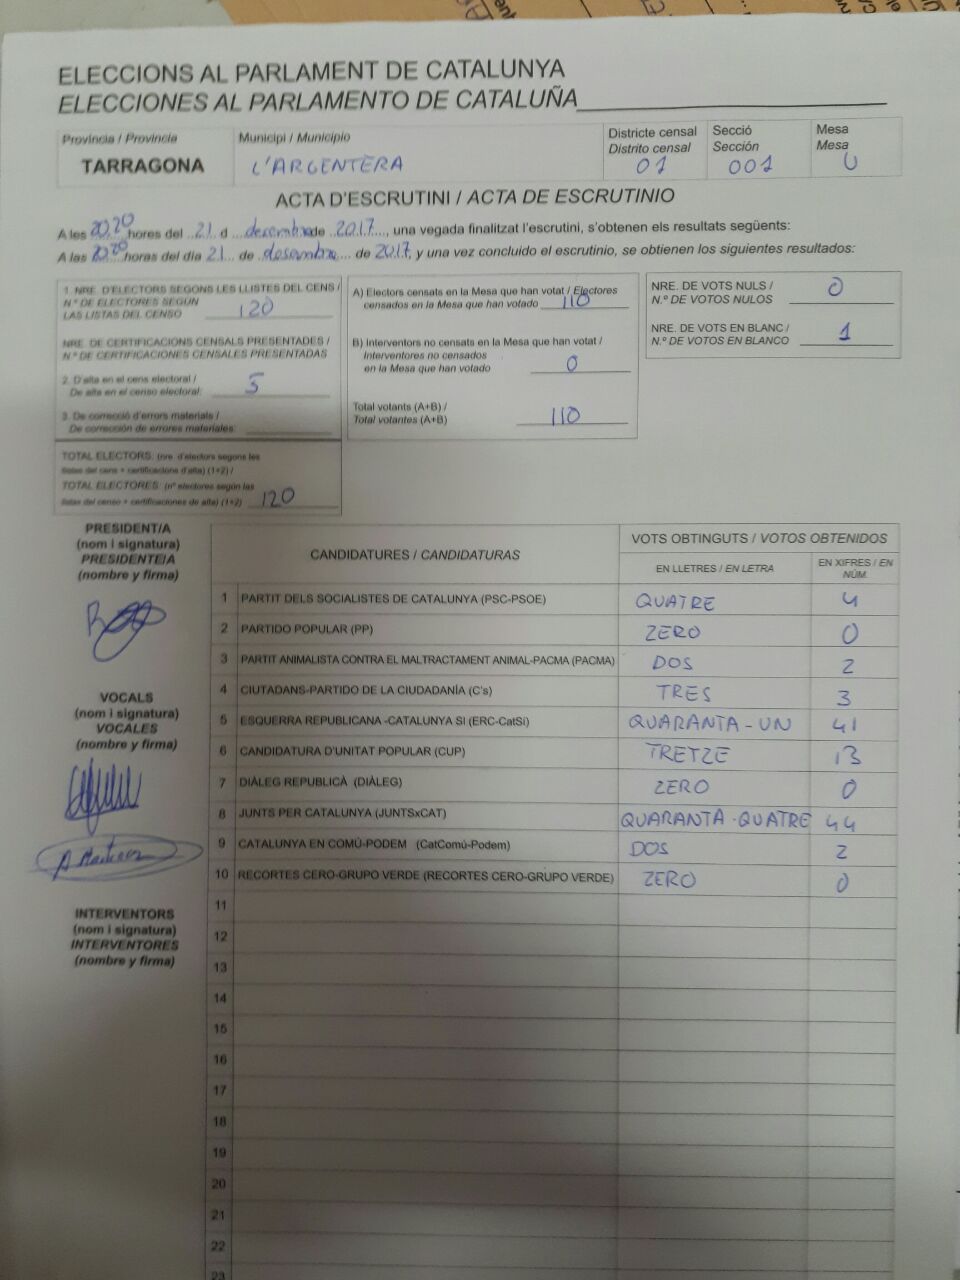 ELECCIONS AL PARLAMENT DE CATALUNYA
ELECCIONES AL PARLAMENTO DE CATALUÑA
Provincia / Provincia
TARRAGONA
Municipi / Municipio
L'ARGENTERA
Districte censal
Distrito censal
01
Secció
Sección
001
Mesa
Mesa
U
ACTA D'ESCRUTINI / ACTA DE ESCRUTINIO
A les 20.20 hores del 21 d desembre de 2017, una vegada finalitzat l'escrutini, s'obtenen els resultats següents:
A las 20.20 horas del día 21 de desembre de 2017, y una vez concluido el escrutinio, se obtienen los siguientes resultados:
1. NRE. D'ELECTORS SEGONS LES LLISTES DEL CENS /
N.º DE ELECTORES SEGÚN
LAS LISTAS DEL CENSO 120
NRE. DE CERTIFICACIONS CENSALS PRESENTADES /
N.º DE CERTIFICACIONES CENSALES PRESENTADAS
2. D'alta en el cens electoral /
De alta en el censo electoral: 5
3. De correcció d'errors materials /
De corrección de errores materiales:
TOTAL ELECTORS: (nre. d'electors segons les
llistes del cens + certificacions d'alta) (1+2) /
TOTAL ELECTORES: (nº electores según las
listas del censo + certificaciones de alta) (1+2) 120
A) Electors censats en la Mesa que han votat / Electores
censados en la Mesa que han votado 110
B) Interventors no censats en la Mesa que han votat /
Interventores no censados
en la Mesa que han votado 0
Total votants (A+B) /
Total votantes (A+B) 110
NRE. DE VOTS NULS /
N.º DE VOTOS NULOS 0
NRE. DE VOTS EN BLANC /
N.º DE VOTOS EN BLANCO 1
PRESIDENT/A
(nom i signatura)
PRESIDENTE/A
(nombre y firma)
VOCALS
(nom i signatura)
VOCALES
(nombre y firma)
INTERVENTORS
(nom i signatura)
INTERVENTORES
(nombre y firma)
CANDIDATURES / CANDIDATURAS
VOTS OBTINGUTS / VOTOS OBTENIDOS
EN LLETRES / EN LETRA
EN XIFRES / EN
NÚM.
1 PARTIT DELS SOCIALISTES DE CATALUNYA (PSC-PSOE) QUATRE 4
2 PARTIDO POPULAR (PP) ZERO 0
3 PARTIT ANIMALISTA CONTRA EL MALTRACTAMENT ANIMAL-PACMA (PACMA) DOS 2
4 CIUTADANS-PARTIDO DE LA CIUDADANÍA (C's) TRES 3
5 ESQUERRA REPUBLICANA -CATALUNYA SÍ (ERC-CatSí) QUARANTA - UN 41
6 CANDIDATURA D'UNITAT POPULAR (CUP) TRETZE 13
7 DIÀLEG REPUBLICÀ (DIÀLEG) ZERO 0
8 JUNTS PER CATALUNYA (JUNTSxCAT) QUARANTA - QUATRE 44
9 CATALUNYA EN COMÚ-PODEM (CatComú-Podem) DOS 2
10 RECORTES CERO-GRUPO VERDE (RECORTES CERO-GRUPO VERDE) ZERO 0
11
12
13
14
15
16
17
18
19
20
21
22
23